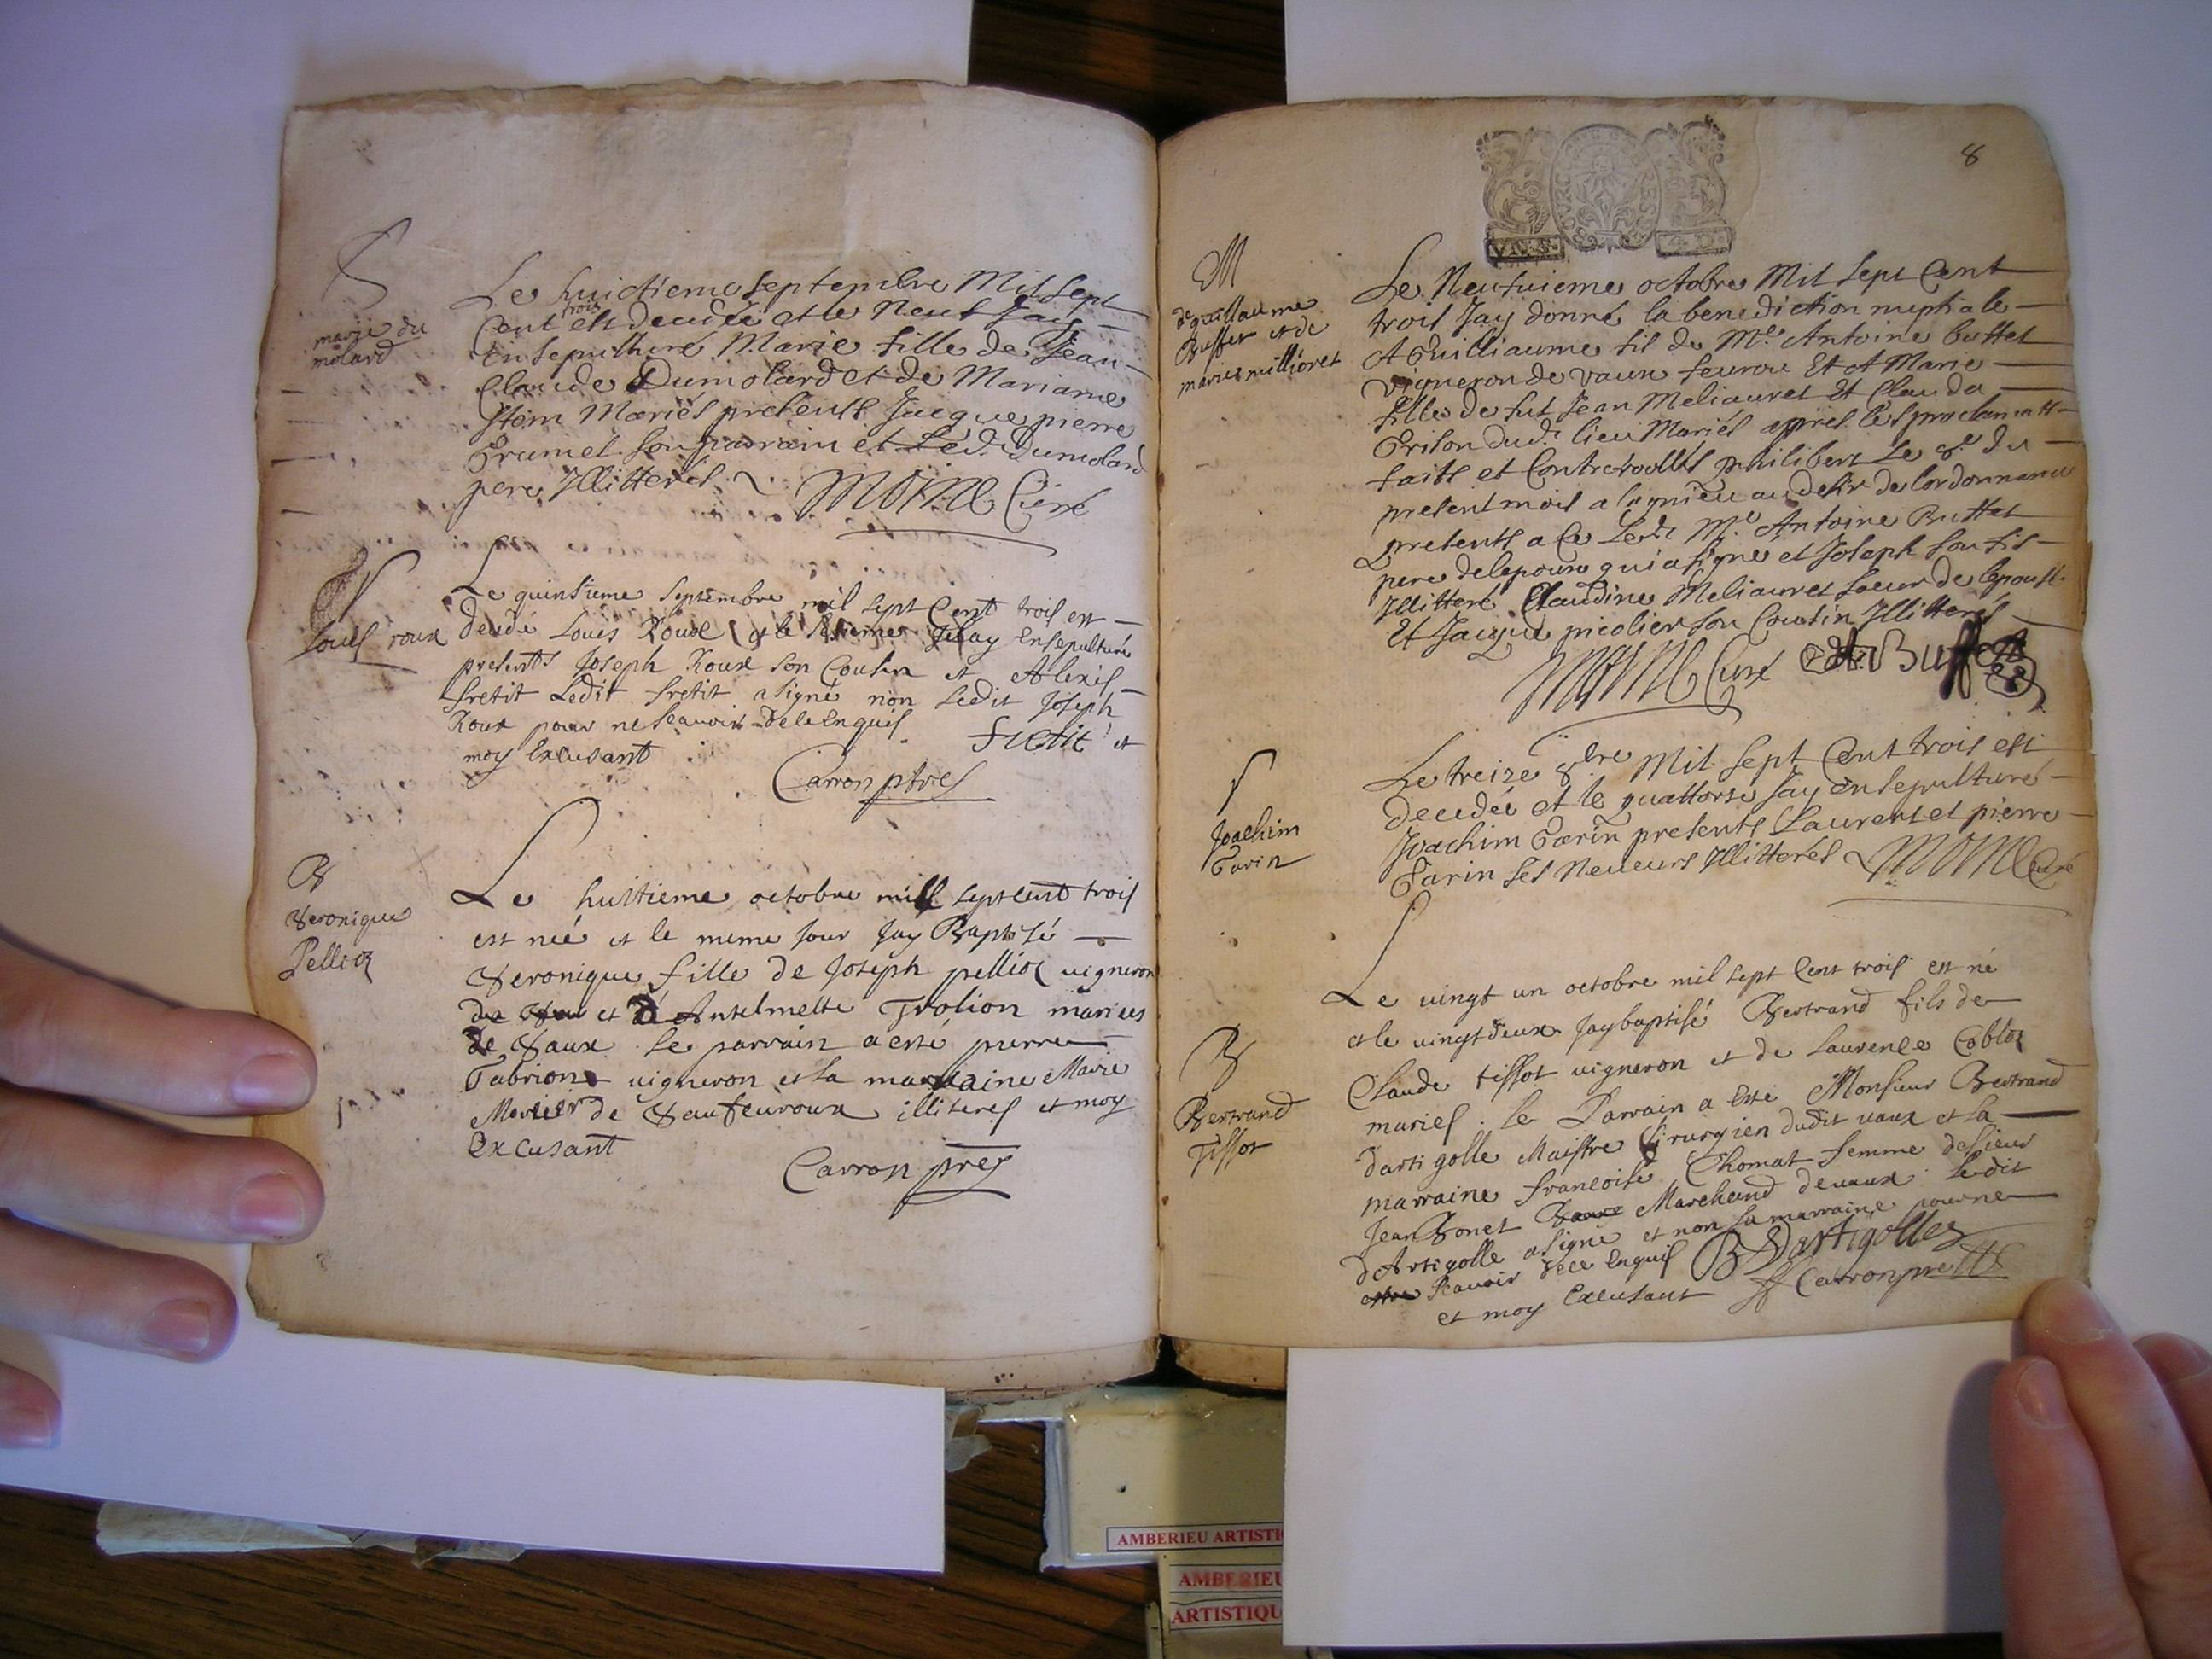 S
marie du
molard
Le huictieme septembre Mil sept
Cent trois est decedée et le Neuf Jay
Ensepulturé Marie fille de Jean
Claude Dumolard et de Mariame
Item Mariés presents Jacque pierre
Grumet son parrain et Led. Dumolard
pere Illitterés
Moine Curé
S
louis roux
Le quinsieme septembre mil sept Cent trois est
decedé Louis Roux et le Jelay Ensepulturé
presents Joseph Roux son Cousin et Alexis
fretit Ledit fretit a signé non Ledit Joseph
Roux pour ne scauoir de ce Enquis fretit et
moy Excusant
Carron ptre
B
Veronique
Pellioz
Le huitieme octobre mill sept cent trois
est neé et le meme Jour Jay Baptisé
Veronique fille de Joseph pellioz uigneron
et d'Antelmette Trolion mariees
de Vaux Le parrain a esté pierre
Tabrion uigneron et la marraine Marie
de Vaufeuroux illiteres et moy
Excusant
Carron pre
8
M
de guillaume
Buffet et de
marie millioret
Le Neufuieme octobre Mil sept Cent
trois Jay donné la benediction nuptiale
A Guilliaume fil de Me. Antoine buffet
vigneron de Vaux feurou Et A Marie
fille de fut Jean Meliauret Et Clauda
Grison dud. lieu Mariés appres les proclamatt
faits et Controollés philibert Le 8e du
present mois a lagnieu au desir de lordonnance
presents a Ce Ledt Me. Antoine Buffet
pere delepoux qui a signé et Joseph son fils
Illitteré Claudine Meliauret soeur de lepouse
Et Jacque picolier son Cousin Illitterés
Moine Curé Buffet
S
Joachim
Garin
Le treize 8bre Mil sept Cent trois est
decedée et le quattorse Jay ensepulturé
Joachim Garin presents Laurent et pierre
Garin ses Neueurs Illitterés Moine Curé
B
Bertrand
Tissot
Le uingt un octobre mil sept Cent trois est né
et le uingt deux Jay baptisé Bertrand fils de
Claude tissot uigneron et de Laurence Cobloz
mariés. Le Parrain a Esté Monsieur Bertrand
dartigolle Maistre Cirurgien dudit uaux et la
marraine francoise Chomat femme de sieur
Jean Bonet Marchand de uaux Ledit
dArtigolle a signé et non la marraine pour ne
scauoir de ce Enquis B Dartigolles
et moy Excusant Carron pre
AMBERIEU ARTISTI
AMBERIEU
ARTISTIQU